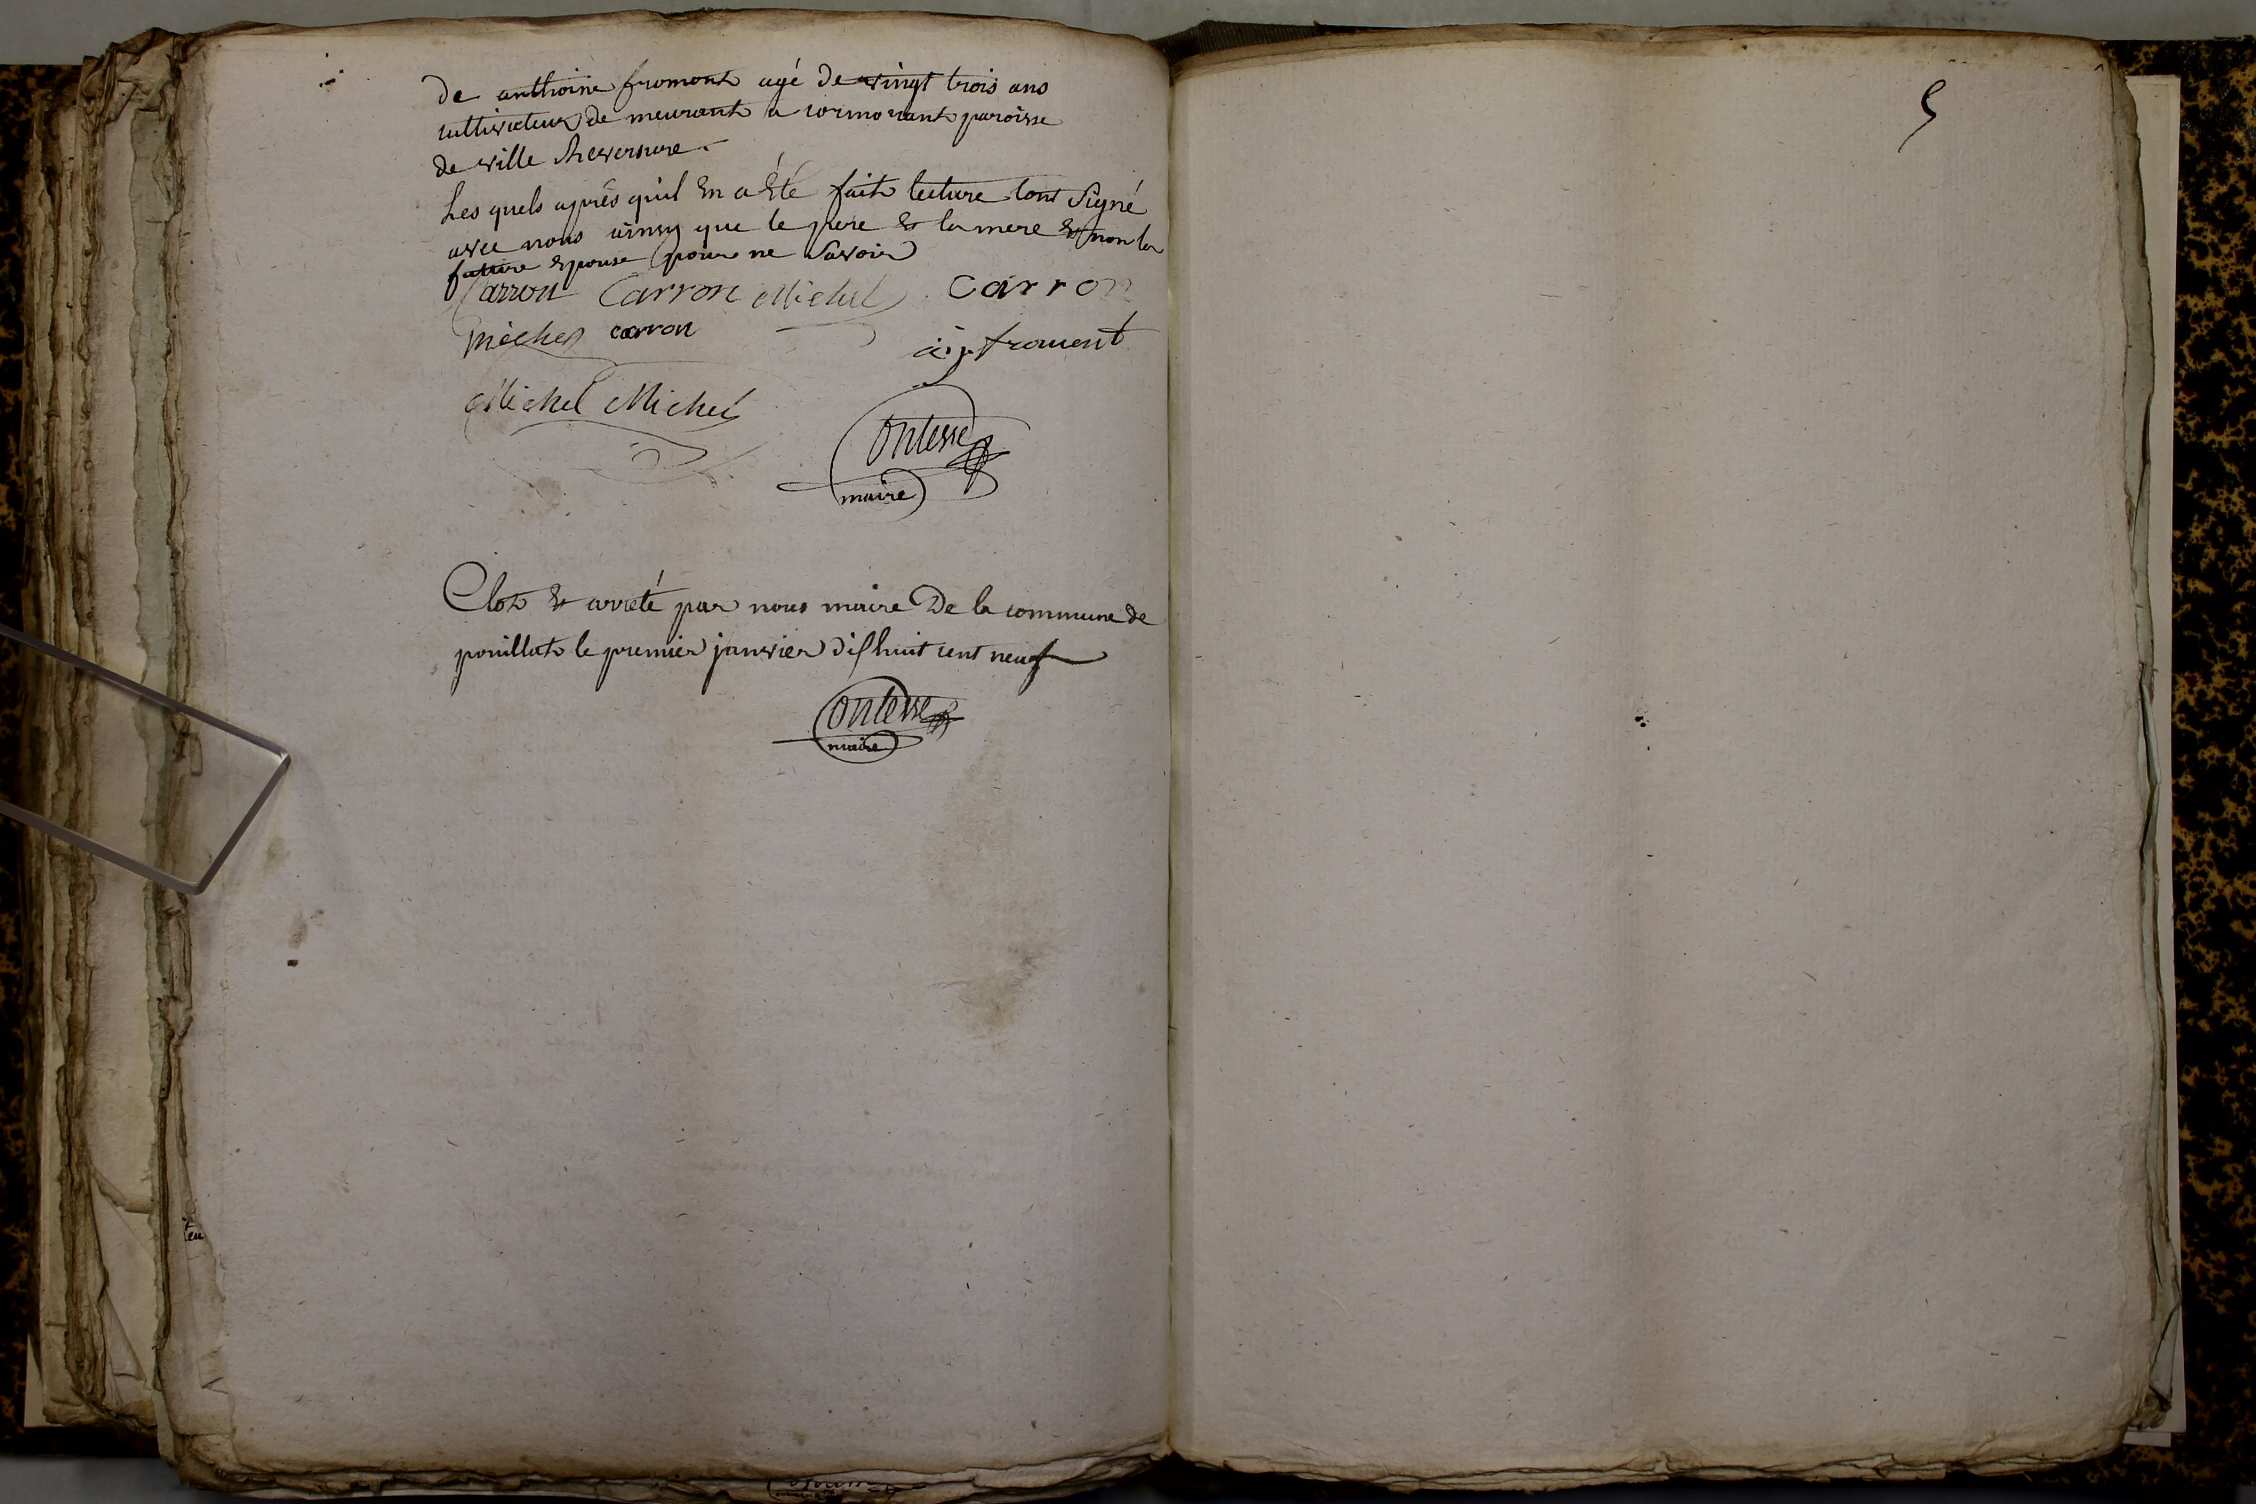 de anthoine fromont agé de vingt trois ans
cultivateur de meurant a cormorant paroisse
de ville Reversure.
Les quels après quil En a Eté fait lecture lont Signé
avec nous ainsy que le pere & la mere & non la
future Epouse pour ne Savoir
Carron Carron Michel Carron
Michel carron
froment
Michel Michel
Contesse
maire
Clot & arreté par nous maire De la commune de
pouillat le premier janvier dix huit cent neuf
Contesse
maire
5